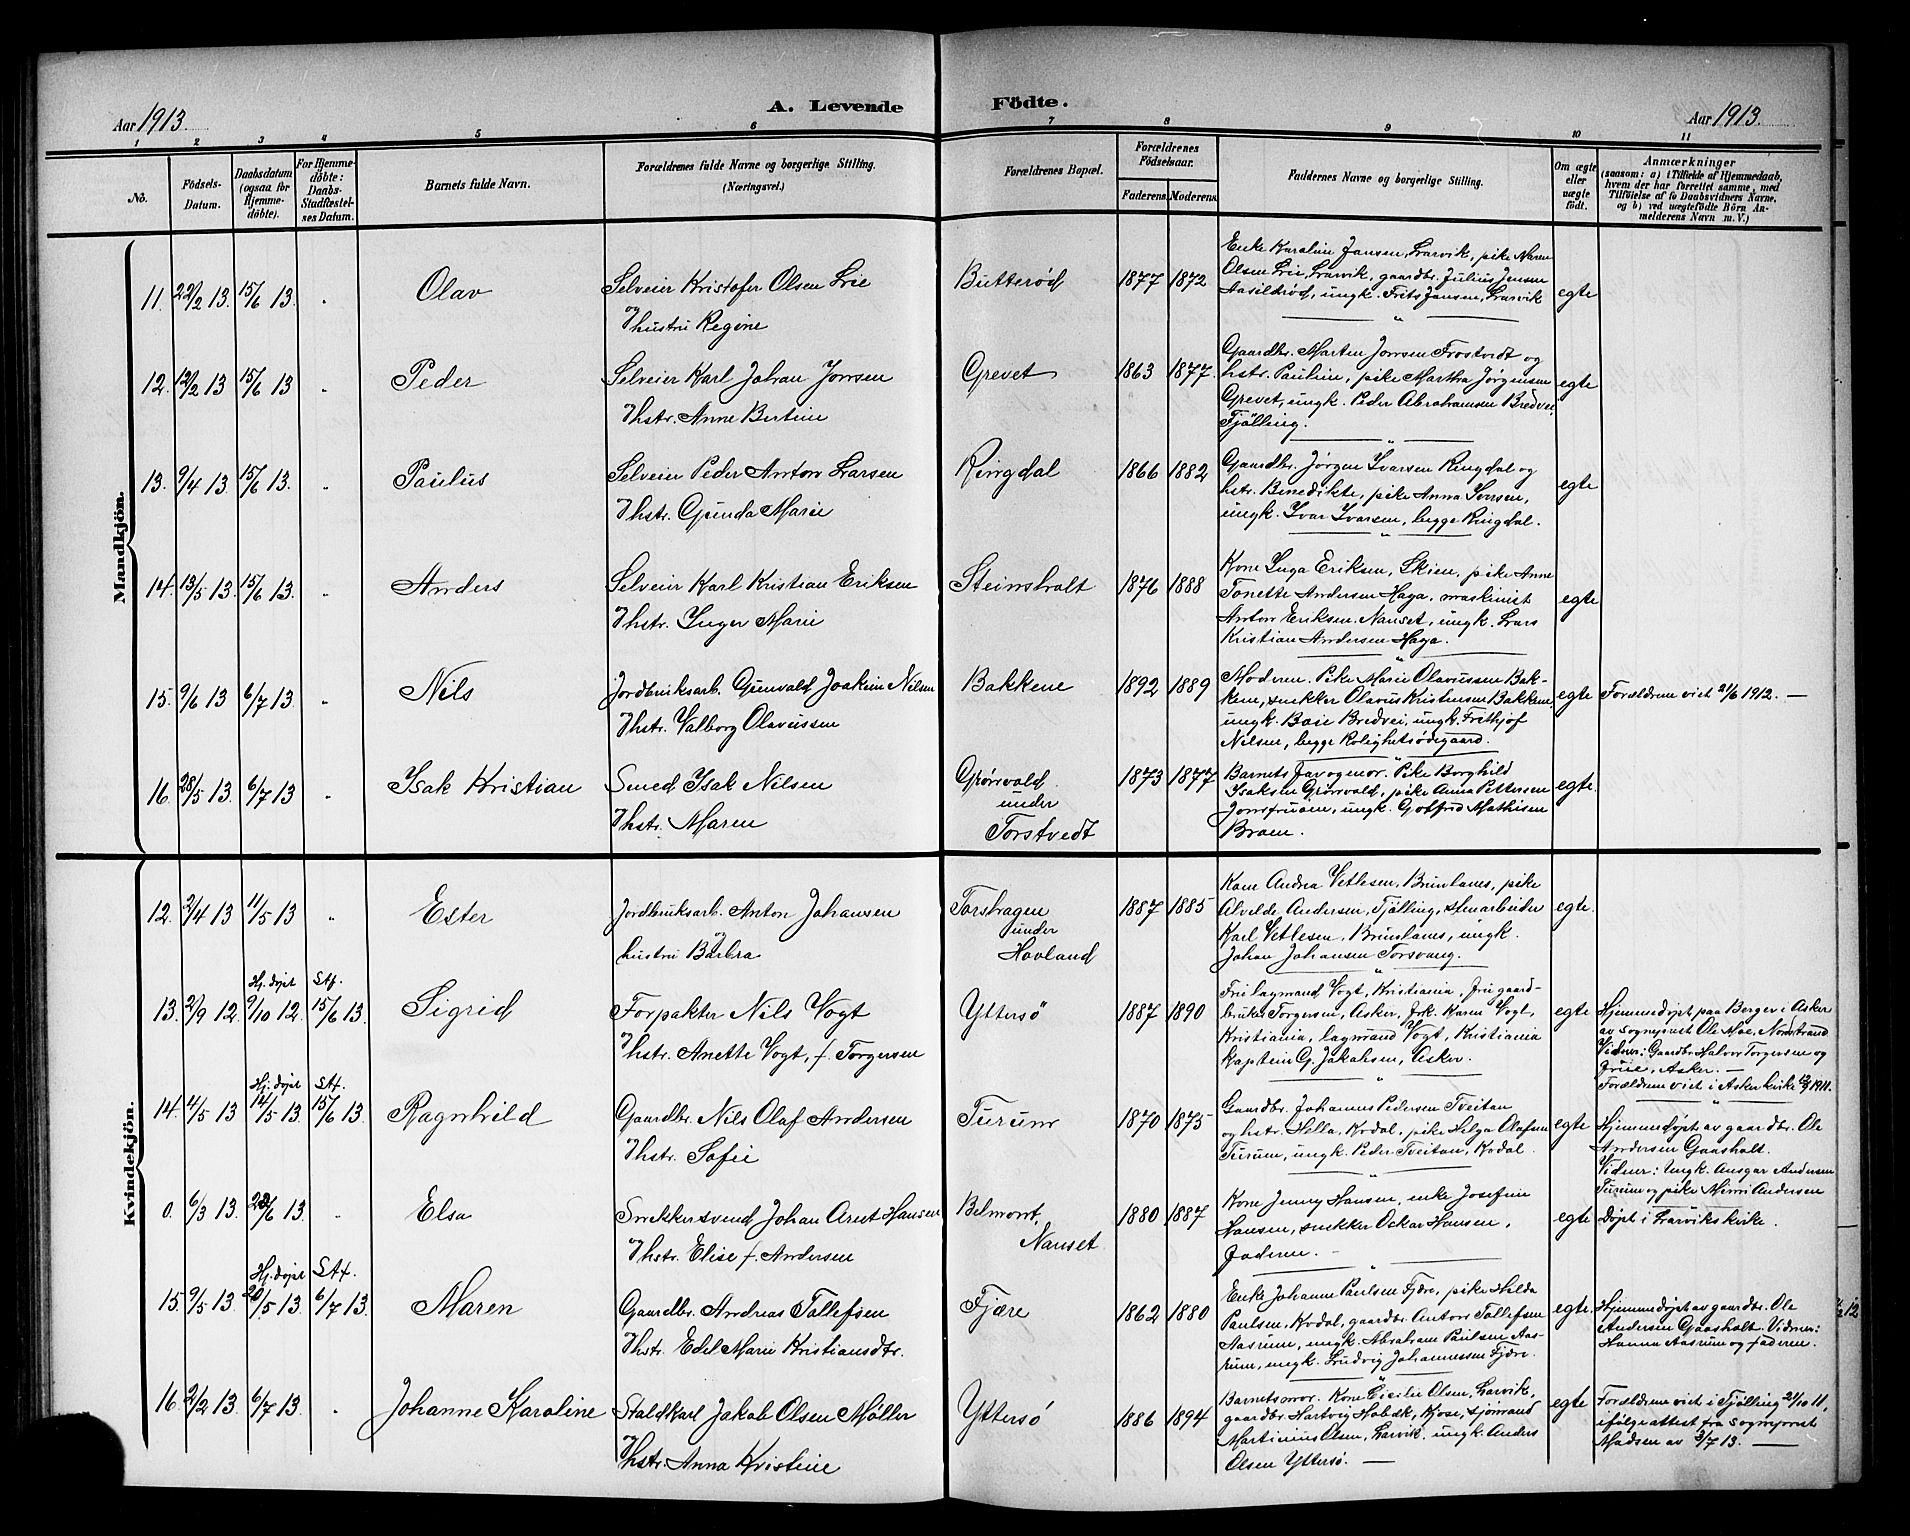 Aar 1913.
A. Levende Födte.
Aar 1913.
1 2 3 4 5 6 7 8 9 10 11
No.
Födsels-Datum.
Daabsdatum (ogsaa for Hjemmedöbte).
For Hjemmedöbte: Daabs-Stadfæstelses Datum.
Barnets fulde Navn.
Forældrenes fulde Navne og borgerlige Stilling. (Næringsvei.)
Forældrenes Bopæl.
Forældrenes Födselsaar.
Faderens. Moderens.
Faddernes Navne og borgerlige Stilling.
Om ægte eller uægte födt.
Anmærkninger
(saasom: a) i Tilfælde af Hjemmedaab,
hvem der har forrettet samme, med
Tilföielse af to Daabsvidners Navne,
og b) ved uægtefödte Börn An-
melderens Navn m. V.)
Mandkjön.
11. 22/2 13. 15/6 13. " Olav
Selveier Kristofer Olsen Lie
og hustru Regine
Butterød
1877 1872
Enke Karoline Jansen, Larvik, pike Maren
Olsen Lie, Larvik, gaardbr. Julius Jensen
Aasildrød, ungk. Frits Jansen, Larvik
egte
12. 12/2 13 15/6 13 " Peder
Selveier Karl Johan Jonsen
og hstr. Anne Bertine
Grevet
1863 1877.
Gaardbr. Marten Jonsen Frostvedt og
hstr. Pauline, pike Martha Jørgensen
Grevet, ungk. Peder Abrahamsen Bredvei,
Tjølling.
egte
13. 9/4 13. 15/6 13. " Paulus
Selveier Peder Anton Larsen
og hstr. Gunda Marie
Ringdal
1866 1882
Gaardbr. Jørgen Ivarsen Ringdal og
hstr. Benedikte, pike Anna Ivarsen,
ungk. Ivar Ivarsen, begge Ringdal.
egte
14. 13/5 13. 15/6 13. " Anders
Selveier Karl Kristian Eriksen
og hstr. Inger Marie
Steinsholt
1876 1888
Kone Inga Eriksen, Skien, pike Anne
Tonette Andersen Haga, maskinist
Anton Eriksen, Nanset, ungk. Lars
Kristian Andersen Haga.
egte
15. 9/6 13 6/7 13. " Nils
Jordbruksarb. Gunvald Joakim Nilsen
og hstr. Valborg Olavussen
Bakkene
1892 1889
Moderen. Pike Marie Olavussen Bak-
kene, snekker Olavus Kristensen Bakkene,
ungk. Boie Bredvei, ungk. Frithjof
Nilsen, begge Rolighetsødegaard.
egte
Forældrene viet 2/6 1912. —
16. 28/5 13. 6/7 13 " Isak Kristian
Smed Isak Nilsen
og hstr. Maren
Grønvold
under
Torstvedt
1873 1877
Barnets far og mor. Pike Borghild
Isaksen Grønvold, pike Anna Pettersen
ungk. Gotfred Mathisen
egte.
Kvindekjön.
12. 2/4 13 11/5 13 " Ester
Jordbruksarb. Anton Johansen
og hustru Barbra
Torshagen
under
Hovland
1887 1885
Kone Andrea Vetlesen, Brunlanes, pike
Alvelde Andersen, Tjølling, stenarbeider
Karl Vetlesen, Brunlanes, ungk.
Johan Johansen Torsvang.
egte.
Hj. døpt Staf.
13. 2/9 12. 9/10 12. 15/6 13. Sigrid
Forpakter Nils Vogt
og hstr. Anette Vogt, f. Torgersen
Yttersø
1887 1890
Fru lagmand Vogt, Kristiania, fru gaard-
bruker Torgersen, Asker, frk. Karen Vogt,
Kristiania, lagmand Vogt, Kristiania
kaptein G. Jakobsen, Asker.
egte
Hjemmedøpt paa Berger i Asker
av sogneprest Ole Moe, Nordstrand
Vidner: Gaardbr. Halvor Torgersen og
frue, Asker. —
Forældrene viet i Asker kirke 1911.
Hj. døpt Staf.
14. 4/5 13 14/5 13. 15/6 13. Ragnhild
Gaardbr. Nils Olaf Andersen
og hstr. Sofie
Furum
1870 1875
Gaardbr. Johannes Pedersen Tveitan
og hstr. Hella, Kodal, pike Helga Olafsen
Furum, ungk. Peder Tveitan, Kodal.
egte
Hjemmedøpt av gaardbr. Ole
Andersen Gaasholt.
Vidner: Ungk. Ansgar Andersen
Furum og pike Mimi Andersen
0. 6/3 13. 13. " Elsa
Snekkersvend Johan Arnt Hansen
og hstr. Elise f. Andersen
Belmont,
Nanset
1880 1887
Kone Jenny Hansen, enke Josefine
Hansen, snekker Oskar Hansen,
faderen. —
egte
Døpt i Larviks kirke.
Hj. døpt Staf.
15. 9/5 13. 20/5 13. 6/7 13. Maren
Gaardbr. Andreas Tollefsen
og hstr. Edel Marie Kristiansdtr.
Fjære
1862 1880
Enke Johanne Paulsen Fjære, pike Hilda
Paulsen, Kodal, gaardbr. Anton Tollefsen
Aasrum, ungk. Abraham Paulsen Aas-
rum, ungk. Ludvig Johannessen Fjære.
egte.
Hjemmedøpt av gaardbr. Ole
Andersen Gaasholt. Vidner:
Hanna Aasrum og faderen.
16. 2/2 13 6/7 13. " Johanne Karoline
Staldkarl Jakob Olsen Møller
og hstr. Anna Kristine
Yttersø
1886 1894
Barnets mor. Kone Cecilie Olsen, Larvik,
gaardbr. Hartvig Hobæk, Kjose, sjømand
Martinius Olsen, Larvik, ungk. Anders
Olsen Yttersø. —
egte
Forældrene viet i Tjølling 21/10 11,
ifølge attest fra sogneprest
Madsen av 3/7 13. —